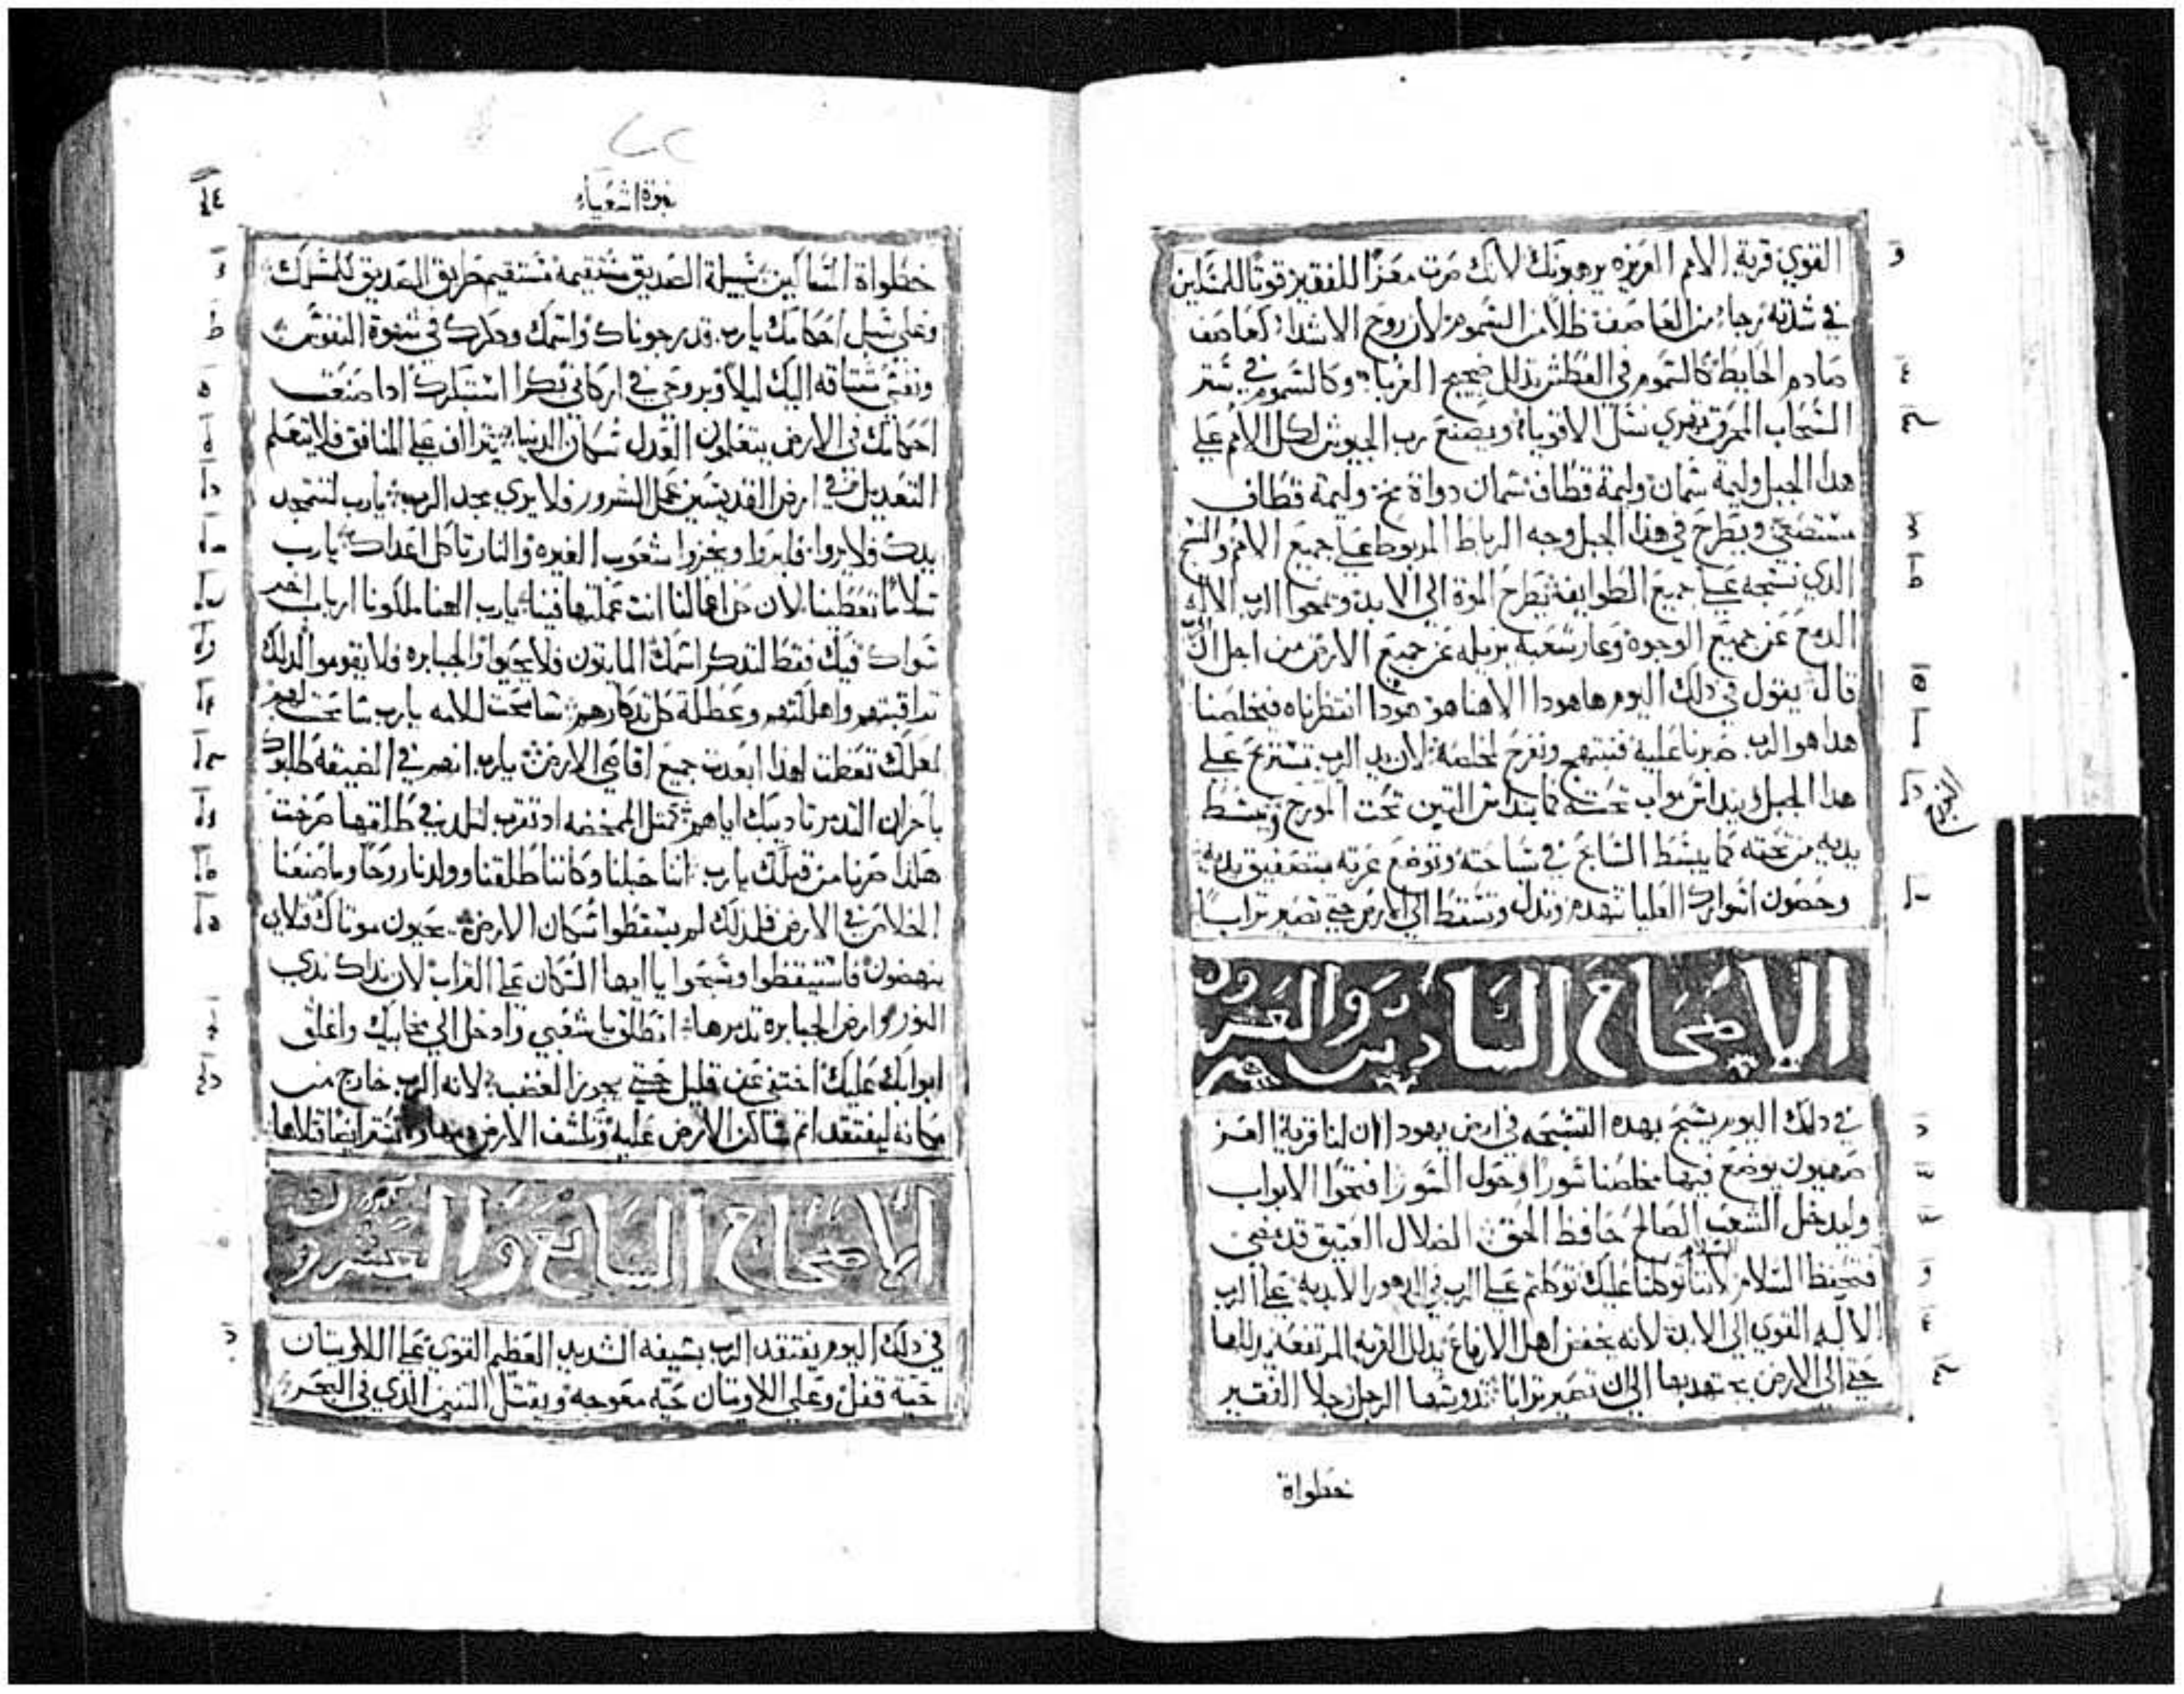 القوي قرية الامم العزيزه يرهبونك لانك صرت معزا للفقير قوتا للمسكين
في شدته رجاء من العاصف ظلا من السموم لان روح الاشداء كعاصف
صادم الحايط كالسموم في العطش تذلل ضجيج الغرباء وكالسموم في ستر
السحاب المحرق تذوي نسل الاقوياء ويصنع رب الجيوش لكل الامم علي
هدا الجبل وليمة سمان وليمة قطاف سمان دواة مخ وليمة قطاف
مستصفي ويطرح في هذا الجبل وجه الرباط المربوط علي جميع الامم والنسج
الدي نسجه علي جميع الطوايف يطرح الموة الي الابد ويمحوا الرب الاله
الدمع عن جميع الوجوه وعار شعبه يزيله عن جميع الارض من اجل ان الرب
قال يقول في دلك اليوم هاهودا الاهنا هو هودا انتظرناه فيخلصنا
هدا هو الرب صبرنا عليه فنبتهج ونفرح بخلصه لان يد الرب تستريح علي
هدا الجبل ويندانس مواب تحته كما يندانس التبن تحت المورج ويبسط
التورج
يديه من تحته كما يبسط السابح في سباحته وتوضع عزته بتصفيق يديه
وحصون اسوارك العليا تنهدم وتدل وتسقط الي الارض حتي تصير ترابا
الاصحاح السادس والعشرون
في دلك اليوم يسبح بهده التسبحه في ارض يهودا ان لنا قرية العز
صهيون يوضع فيها مخلصنا سورا وحول السور افتحوا الابواب
وليدخل الشعب الصالح حافظ الحق الضلال العتيق قد مضي
فتحفظ السلام السلام لاننا توكلنا عليك توكلتم علي الرب في الدهور الابديه علي الرب
الاله القوي الي الابد لانه يخفض اهل الارتفاع يدلل القريه المرتفعه يدللها
حتي الي الارض يهدبها الي ان تصير ترابا تدوسها الرجل رجلا الفقير
خطواة
نبوة اشعياء
خطواة المساكين سبيلة الصديق مستقيمه تستقيم طريق الصديق للمسلك
وعلي سبل احكامك يارب قد رجوناك واسمك ودكرك في شهوة النفوس
ونفسي مشتاقه اليك ليلا وبروحي في اركاني بكرا استبكرك ادا صنعت
احكامك في الارض يتعلمون العدل سكان الدنيا يتراف علي المنافق فلا يتعلم
التعديل في ارض القديسين عمل الشرور فلا يري مجد الرب يارب لتتمجد
يدك فلا يروا فليروا ويخزوا شعوب الغيره والنار تاكل اعداك يارب
سلاما تعطينا لان كل اعمالنا انت عملتها فينا يارب الهنا ملكونا ارباب اخر
سواك فيك فقط لندكر اسمك المايتون فلا يحيوا والجبابره فلا يقوموا لدلك
تعاقبتهم واهلكتهم وعطلة كل تدكارهم سامحت للامه يارب سامحت لهم
لعلك تعظمت لهدا ابعدت جميع اقاصي الارض يارب انهم في الضيقه طلبوك
باحزان التدمر تاديبك اياهم كمثل الممخضه اد تقرب لتلد في طلقتها صرخت
هكذا صرنا من قبلك يارب اننا حبلنا وكاننا طلقنا وولدنا روحا وما صنعنا
الخلاص في الارض فلدلك لم يسقطوا سكان الارض يحيون موتاك قتلاي
ينهضون فاستيقظوا وسبحوا يا ايها السكان علي التراب لان نداك ندي
النور وارض الجبابره تدمرها انطلق يا شعبي وادخل الي مخابيك واغلق
ابوابك عليك اختفي عن قليل حتي يجوز الغضب لانه الرب خارج من
مكانه ليفتقد اتم ساكن الارض عليه وتكشف الارض دماها ولا تستر ايضا قتلاها
الاصحاح السابع والعشرون
في دلك اليوم يفتقد الرب بسيفه الشديد العظيم القوي علي اللاويتان
حية قفل وعلي اللاويتان حيه معوجه ويقتل التنين الدي في البحر